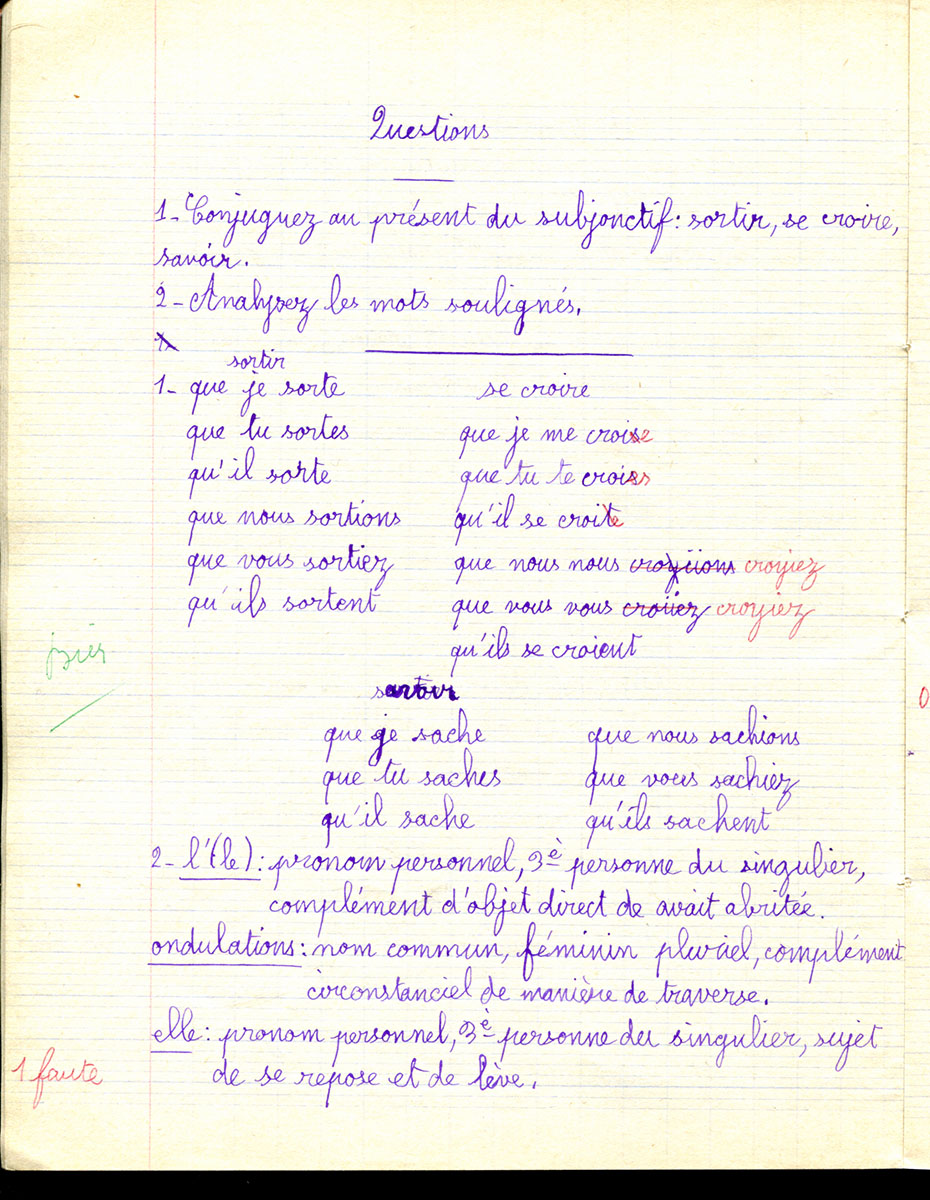 Questions
1- Conjuguez au présent du subjonctif: sortir, se croire,
savoir.
2- Analysez les mots soulignés.
sortir
1- que je sorte se croire
que tu sortes que je me croie
qu'il sorte que tu te croies
que nous sortions qu'il se croie
que vous sortiez que nous nous croyiions croyiez
qu'ils sortent que vous vous croiiez croyiez
qu'ils se croient
que je sache que nous sachions
que tu saches que vous sachiez
qu'il sache qu'ils sachent
2- l'(le): pronom personnel, 3è personne du singulier,
complément d'objet direct de avait abritée.
ondulations: nom commun, féminin pluriel, complément
circonstanciel de manière de traverse.
elle: pronom personnel, 3è personne du singulier, sujet
1 faute
de se repose et de lève.